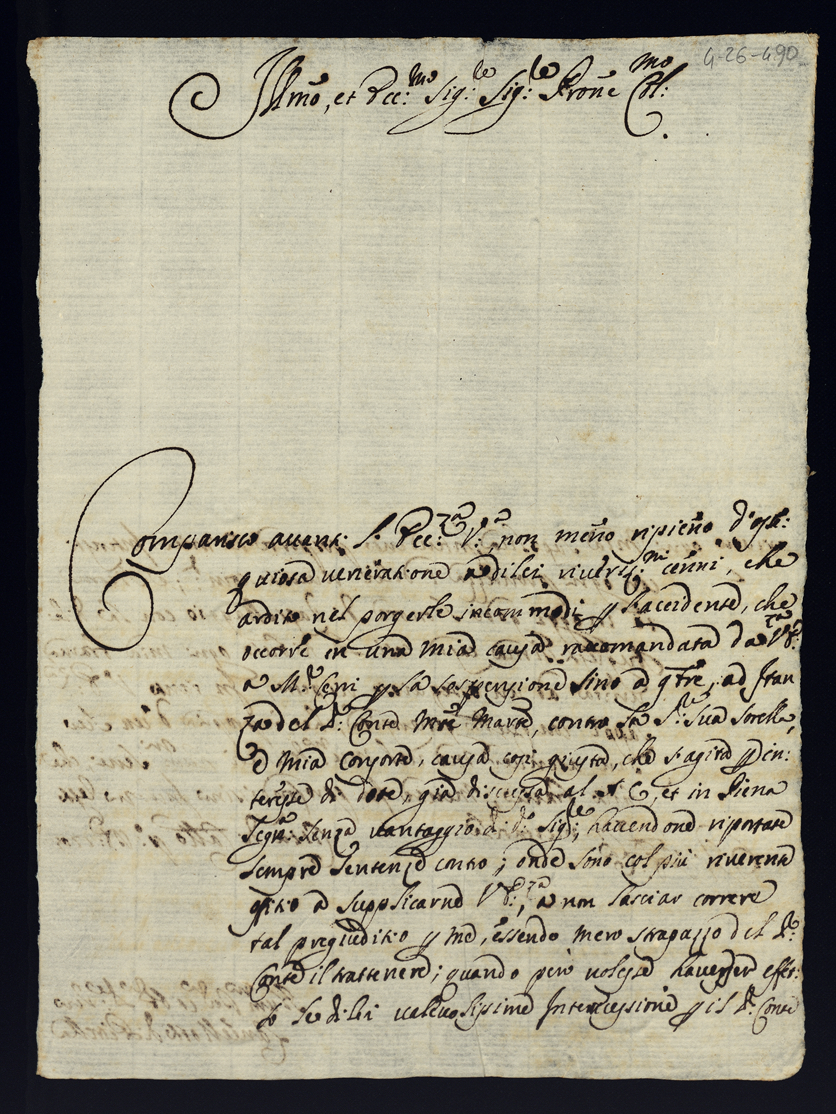 4-26-490
Ill.mo, et Ecc:mo Sig:re Sig:re Prone Col:mo
Comparisco avanti l'Ecc:za V:a non meno ripieno d'osse:
quiosa veneratione a di lei riveriti:mi cenni, che
ardito nel porgerle incommodi p l'accidente, che
occorre in una mia causa raccomandata da V.E:za
a M:r Ceni p la sospensione sino a q.tre, ad Istan
za del S:r Conte Mre Marte, contro la S:ra Sua Sorella,
e mia consorte, causa così giusta, che s'agita p in:
teresse di dote, già discussa al A C, et in Piena
Segn:ra senza vantaggio di d:o Sig:re, havendone riportate
sempre sentenze contro; onde sono col più riverente
a supplicarne V.E:za, a non lasciar correre
tal pregiuditio p me, essendo mero strapazzo del S:r
Conte il trattenere; quando però volesse haver effet:
to le di lei valevolissime Intercessione p il S:r Conte